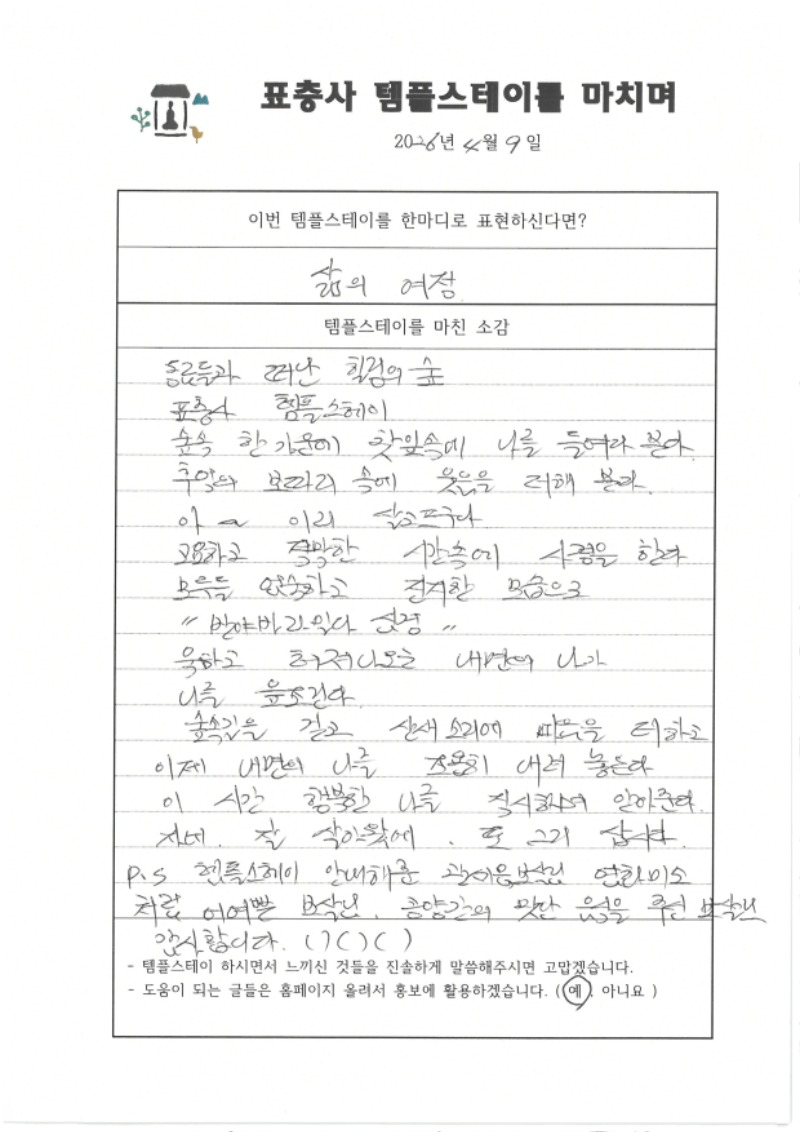 표충사 템플스테이를 마치며
2026년 4월 9일
이번 템플스테이를 한마디로 표현하신다면?
삶의 여정
템플스테이를 마친 소감
동료들과 떠난 힐링의 숲
표충사 템플스테이
숲속 한가운데 찻잎속에 나를 들여다 본다.
추억의 보따리 속에 웃음을 더해 본다.
아 ~ 이리 살고프구나
고요하고 적막한 시간속에 사령을 한다
모두들 엄숙하고 진지한 모습으로
" 반야바라밀다 심경 "
욱하고 터져나오는 내면의 나가
나를 읊조린다.
숲속길을 걷고 산새 소리에 마음을 더하고
이제 내면의 나를 조용히 내려 놓는다
이 시간 행복한 나를 직시하며 안아준다.
자네. 잘 살아왔네. 또 그리 삽시다.
P.S 템플스테이 안내해준 관세음보살님 연화미소
처럼 어여쁜 보살님. 공양간의 맛난 음식을 주신 보살님
감사합니다. ( ) ( ) ( )
- 템플스테이 하시면서 느끼신 것들을 진솔하게 말씀해주시면 고맙겠습니다.
- 도움이 되는 글들은 홈페이지 올려서 홍보에 활용하겠습니다. ( 예 . 아니요 )